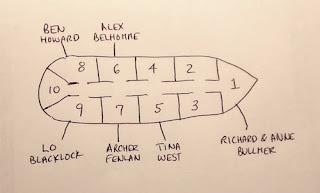 BEN
HOWARD
ALEX
BELHOMME
8 6 4 2
10 1
9 7 5 3
LO
BLACKLOCK
ARCHER
FENLAN
TINA
WEST
RICHARD & ANNE
BULLMER